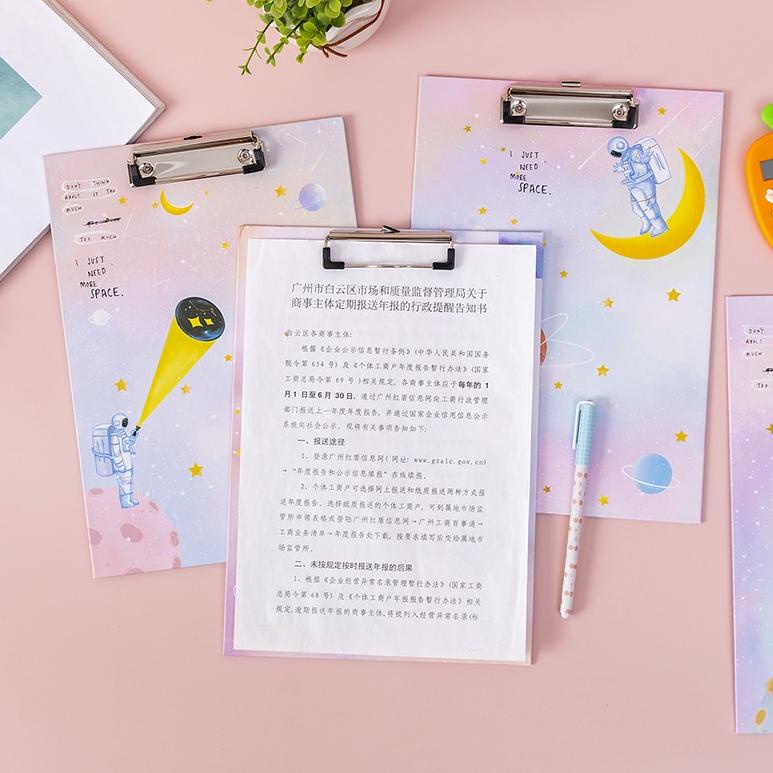 DON'T THINK
ABOUT IT TOO
MUCH
TOO MUCH
I JUST
NEED
MORE
SPACE.
I JUST
NEED
MORE
SPACE.
广州市白云区市场和质量监督管理局关于
商事主体定期报送年报的行政提醒告知书
白云区各商事主体：
根据《企业公示信息暂行条例》(中华人民共和国国务
院令第 654 号) 及《个体工商户年度报告暂行办法》(国家
工商总局令第 69 号 )相关规定，各商事主体应于每年的 1
月1 日至6 月 30 日，通过广州红盾信息网向工商行政管理
部门报送上一年度年度报告，并通过国家企业信用信息公示
系统向社会公示。现将有关事项告知如下：
一、报送途径
1、登录广州红盾信息网( 网址：www.gzaic.gov.cn)
→ "年度报告和公示信息填报" 在线填报。
2、个体工商户可选择网上报送和纸质报送两种方式报
送年度报告。选择纸质报送的个体工商户，可到属地市场监
管所申领表格或登陆广州红盾信息网→广州工商百事通→
工商业务清单→年度报告处下载，按要求填写后交给属地市
场监管所。
二、未按规定按时报送年报的后果
1、根据《企业经营异常名录管理暂行办法》(国家工商
总局令第 68 号) 及《个体工商户年报报告暂行办法》相关
规定,逾期报送年报的商事主体,将被列入经营异常名录(标
DON'T
ABOUT
MUCH